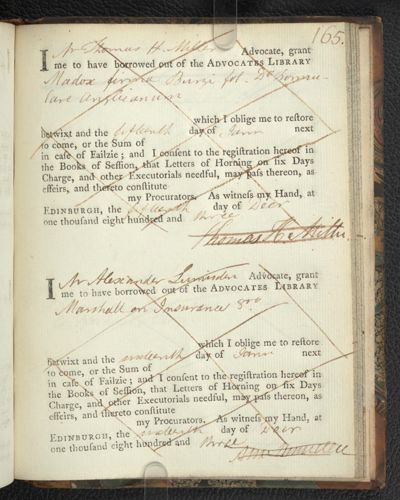 165.
I Mr Thomas H. Miller Advocate, grant
me to have borrowed out of the ADVOCATES LIBRARY
Madox firma Burgi fol. Do Formu-
lare Anglicanum
which I oblige me to restore
betwixt and the fifteenth day of Janr next
to come, or the Sum of
in case of Failzie; and I consent to the registration hereof in
the Books of Session, that Letters of Horning on six Days
Charge, and other Executorials needful, may pass thereon, as
effeirs, and thereto constitute
my Procurators. As witness my Hand, at
EDINBURGH, the fifteenth day of Decr
one thousand eight hundred and three
Thomas H. Miller
I Mr Alexander Lumsden Advocate, grant
me to have borrowed out of the ADVOCATES LIBRARY
Marshall on Insurance 8vo
which I oblige me to restore
betwixt and the sixteenth day of Janr next
to come, or the Sum of
in case of Failzie; and I consent to the registration hereof in
the Books of Session, that Letters of Horning on six Days
Charge, and other Executorials needful, may pass thereon, as
effeirs, and thereto constitute
my Procurators. As witness my Hand, at
EDINBURGH, the sixteenth day of Decr
one thousand eight hundred and three